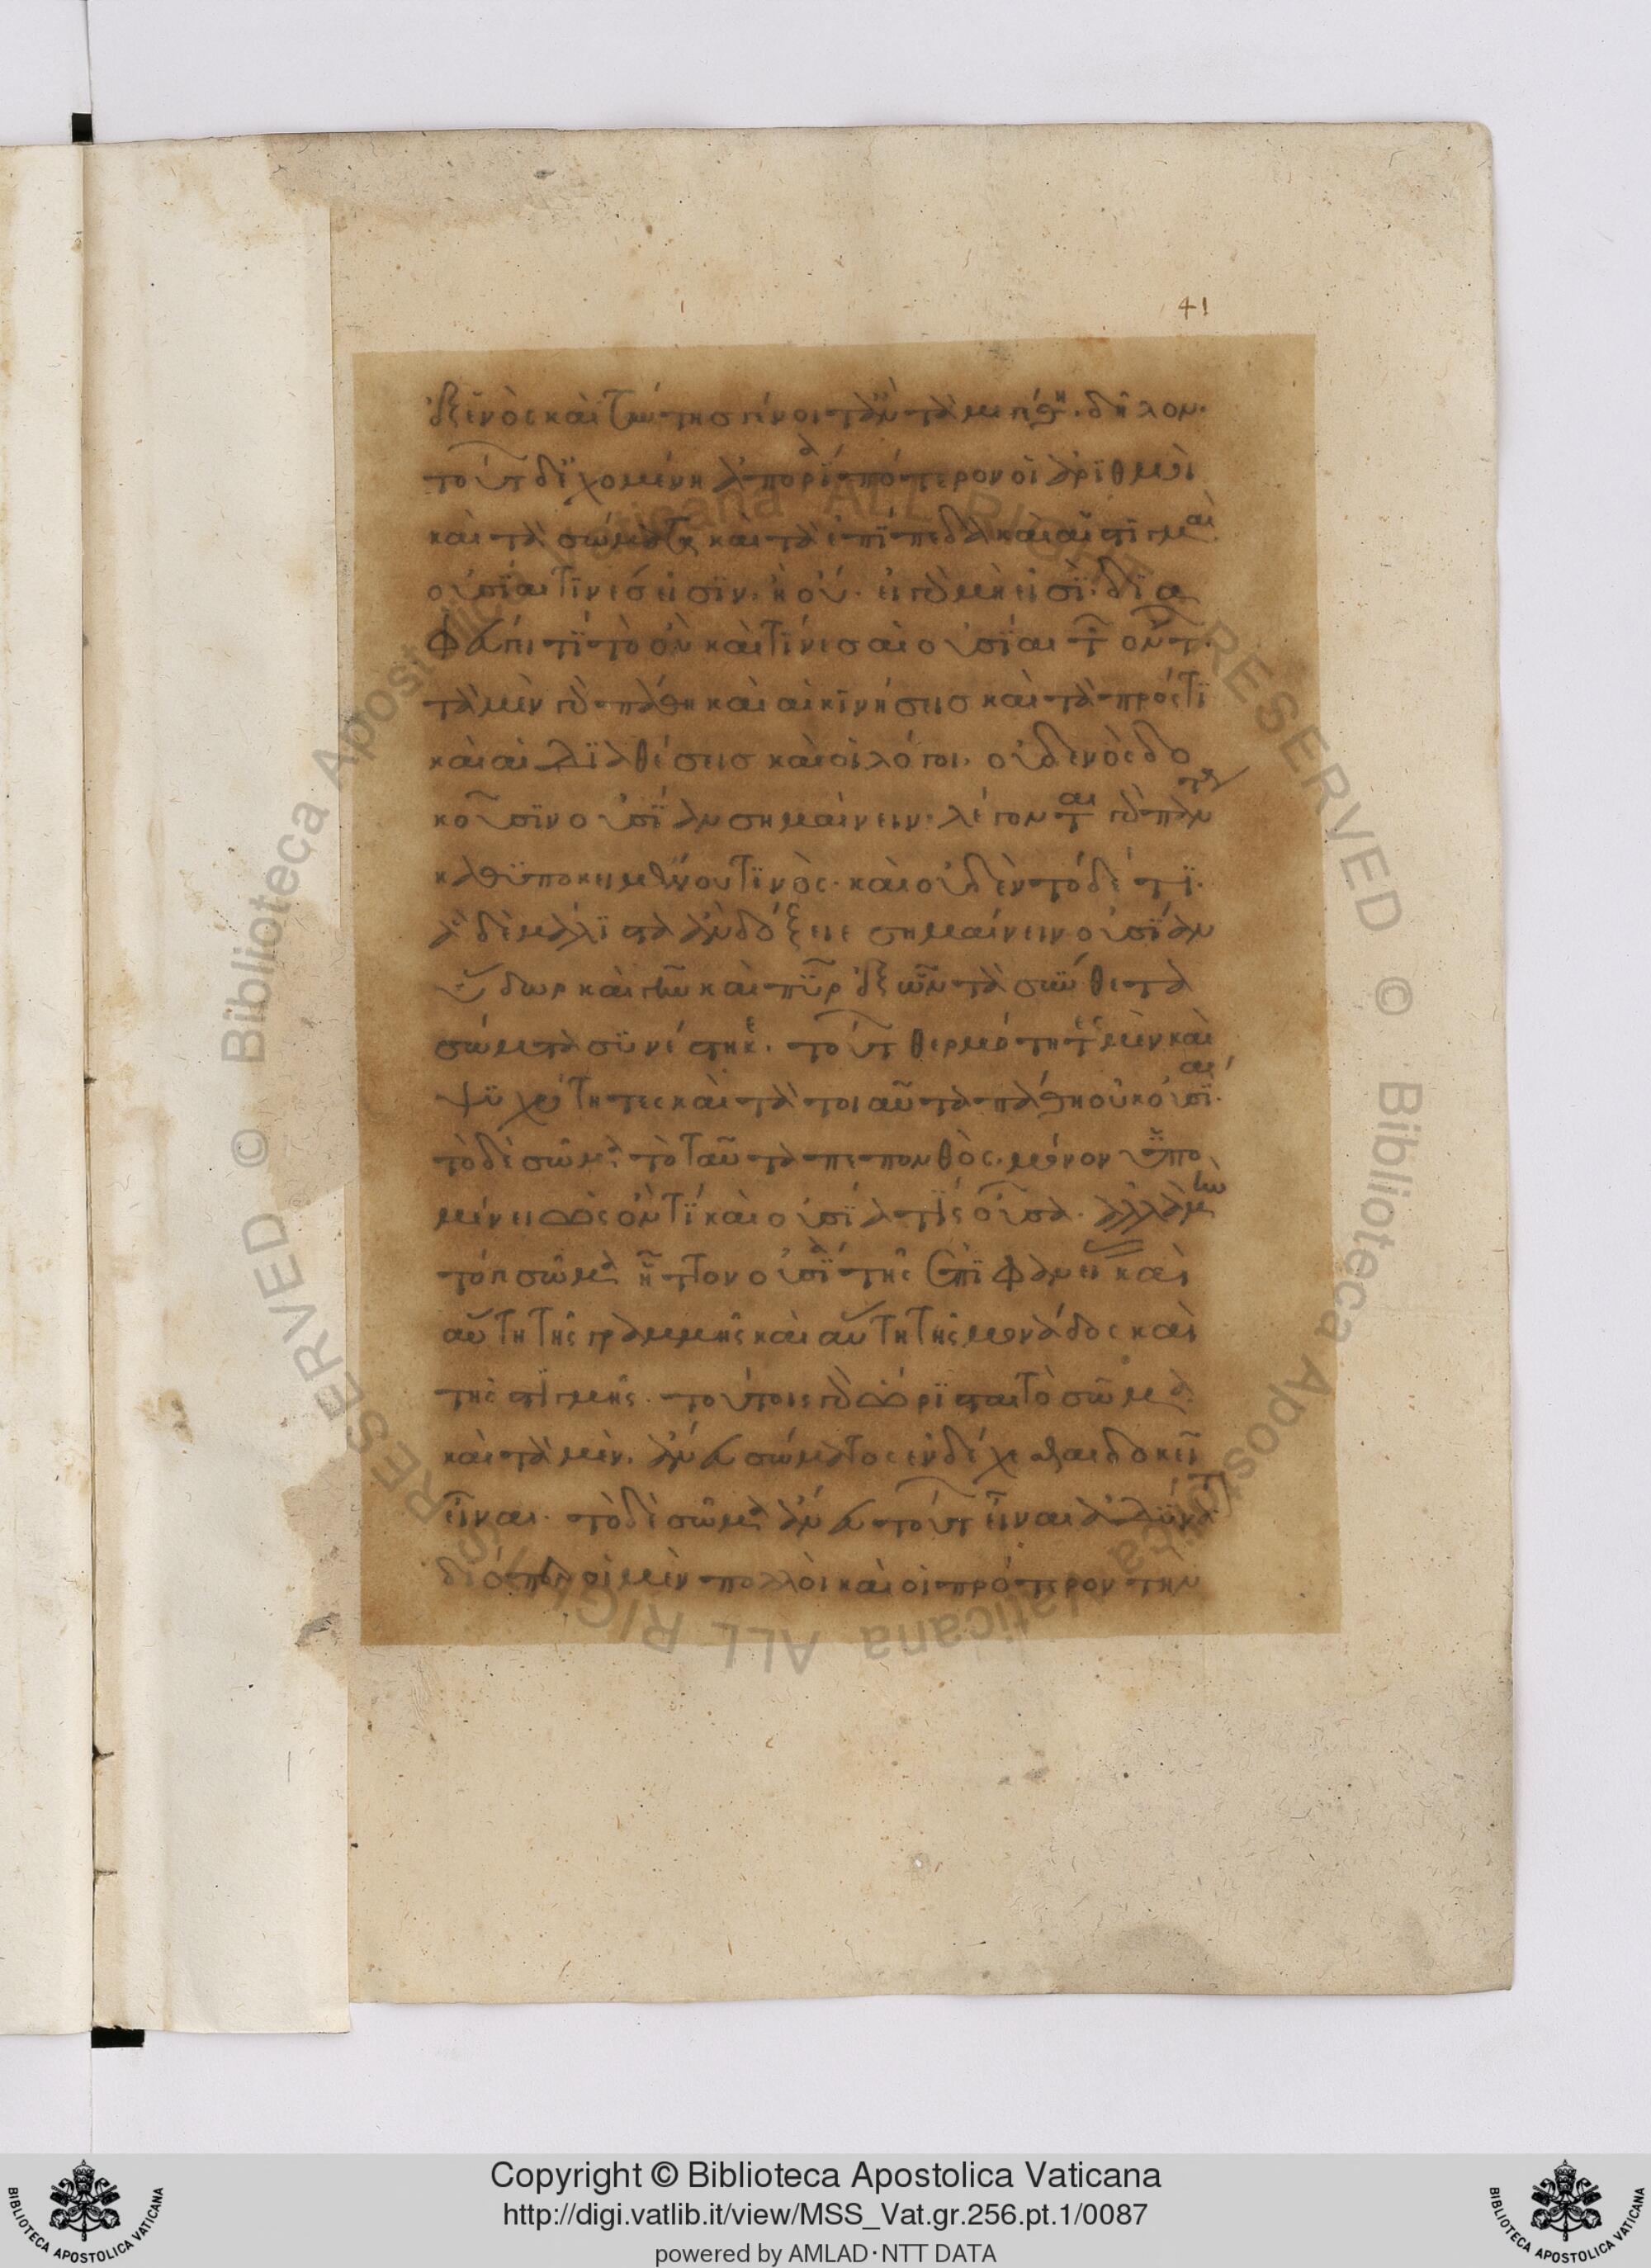 41
ἐξ ἑνὸς καὶ τούτης γίνοιτ' ἂν τὰ μεγέθη. δῆλον.
τούτων δ' ἐχομένη ἀπορία πότερον οἱ ἀριθμοὶ
καὶ τὰ σώματα καὶ τὰ ἐπίπεδα καὶ αἱ στιγμαὶ
οὐσίαι τινές εἰσιν. ἢ οὔ. εἰ γὰρ μή εἰσι. δια
φεύγει τί τὸ ὂν καὶ τίνες αἱ οὐσίαι τῶν ὄντων.
τὰ μὲν γὰρ πάθη καὶ αἱ κινήσεις καὶ τὰ πρός τι
καὶ αἱ διαθέσεις καὶ οἱ λόγοι. οὐδενὸς δο
κοῦσιν οὐσίαν σημαίνειν. λέγονται γὰρ πάντα
καθ' ὑποκειμένου τινός. καὶ οὐδὲν τόδε τι.
ἃ δὲ μάλιστα ἂν δόξειε σημαίνειν οὐσίαν
ὕδωρ καὶ γῆ καὶ πῦρ ἐξ ὧν τὰ σύνθετα
σώματα συνέστηκε. τούτων θερμότητες μὲν καὶ
ψυχρότητες καὶ τὰ τοιαῦτα πάθη οὐκ οὐσίαι.
τὸ δὲ σῶμα τὸ ταῦτα πεπονθὸς. μόνον ὑπο
μένει ὡς ὄν τι καὶ οὐσία τις οὖσα. ἀλλὰ μὴν
τό γε σῶμα ἧττον οὐσία τῆς ἐπιφανείας καὶ
αὕτη τῆς γραμμῆς καὶ αὕτη τῆς μονάδος καὶ
τῆς στιγμῆς. τούτοις γὰρ ὥρισται τὸ σῶμα.
καὶ τὰ μὲν. ἄνευ σώματος ἐνδέχεσθαι δοκεῖ
εἶναι. τὸ δὲ σῶμα ἄνευ τούτων εἶναι ἀδύνατον
διόπερ οἱ μὲν πολλοὶ καὶ οἱ πρότερον τὴν
Copyright © Biblioteca Apostolica Vaticana
http://digi.vatlib.it/view/MSS_Vat.gr.256.pt.1/0087
powered by AMLAD·NTT DATA
BIBLIOTECA APOSTOLICA VATICANA
BIBLIOTECA APOSTOLICA VATICANA
© Biblioteca Apostolica Vaticana ALL RIGHTS RESERVED © Biblioteca Apostolica Vaticana ALL RIGHTS RESERVED